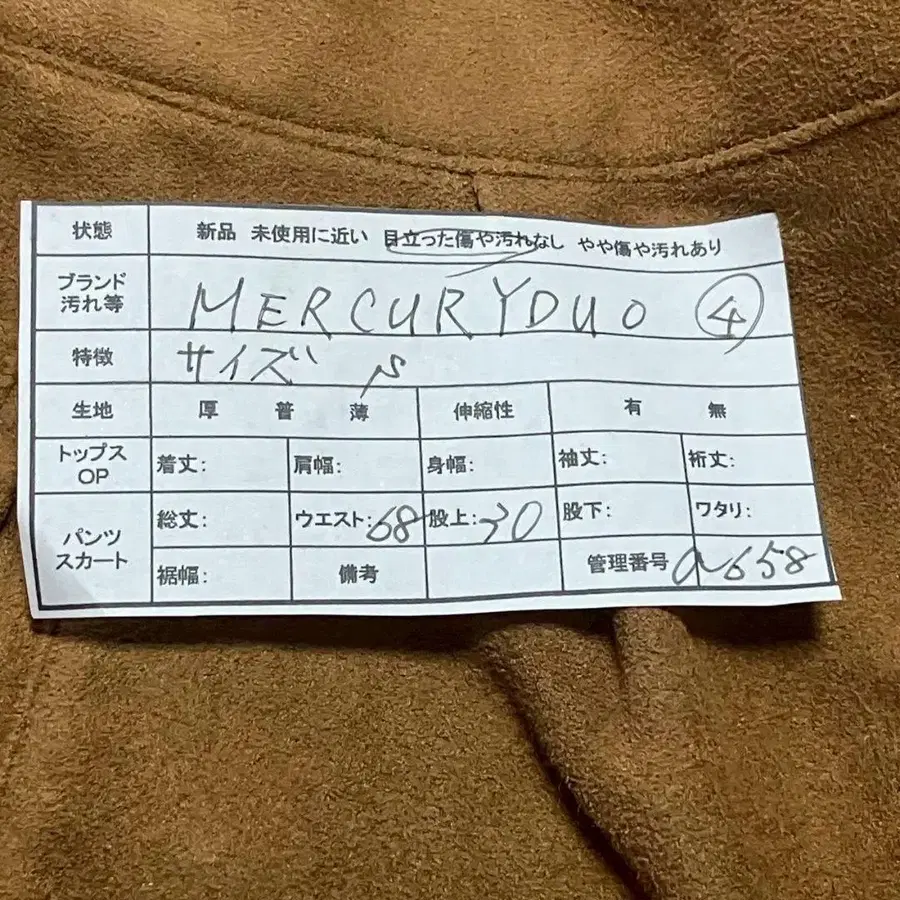 状態 新品 未使用に近い 目立った傷や汚れなし やや傷や汚れあり
ブランド 汚れ等 MERCURYDUO ④
特徴 サイズ S
生地 厚 普 薄 伸縮性 有 無
トップス OP 着丈: 肩幅: 身幅: 袖丈: 裄丈:
パンツ スカート 総丈: ウエスト:68 股上:30 股下: ワタリ:
裾幅: 備考 管理番号 a658